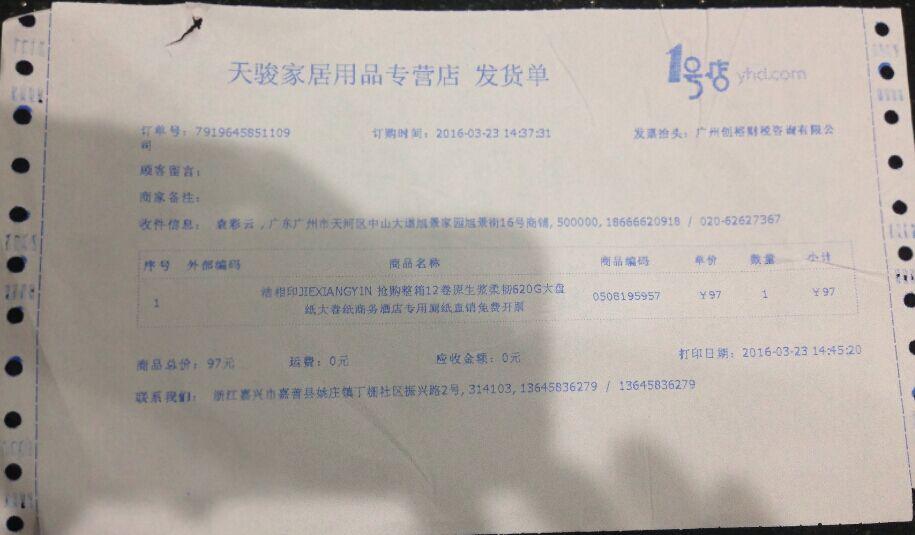 天骏家居用品专营店 发货单
1号店 yhd.com
订单号：7919645851109 订购时间：2016-03-23 14:37:31 发票抬头：广州创榕财税咨询有限公
司
顾客留言：
商家备注：
收件信息： 袁彩云，广东广州市天河区中山大道旭景家园旭景街16号商铺, 500000, 18666620918 / 020-62627367
序号 外部编码 商品名称 商品编码 单价 数量 小计
1 洁相印JIEXIANGYIN 抢购整箱12卷原生浆柔韧620G大盘 0508195957 ￥97 1 ￥97
纸大卷纸商务酒店专用厕纸直销免费开票
商品总价：97元 运费：0元 应收金额：0元 打印日期：2016-03-23 14:45:20
联系我们： 浙江嘉兴市嘉善县姚庄镇丁栅社区振兴路2号, 314103, 13645836279 / 13645836279